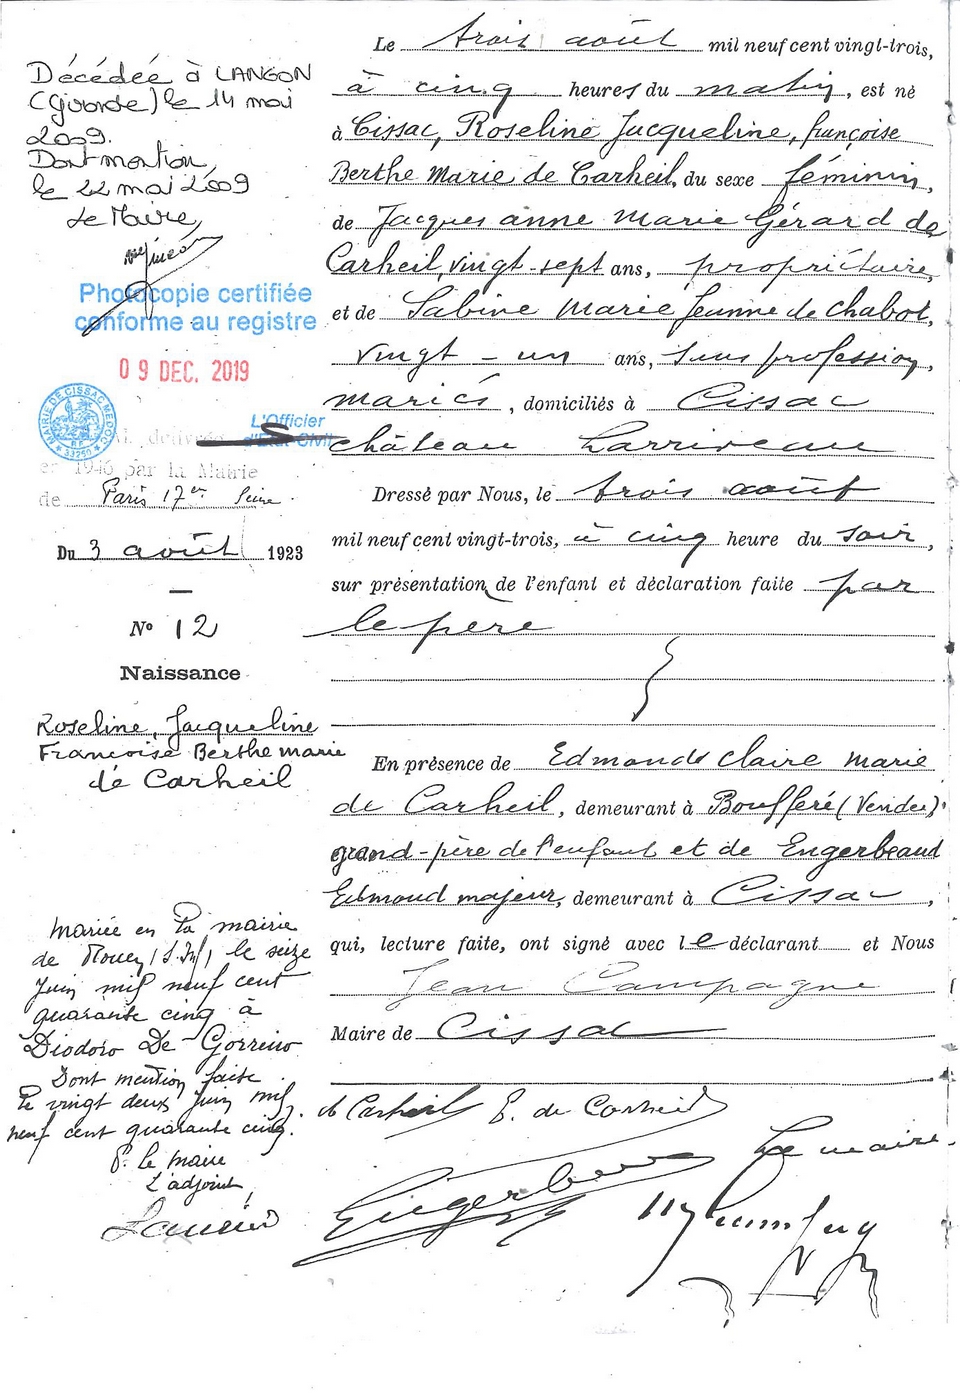 Décédée à LANGON
(Gironde) le 14 mai
2009.
Dont mention,
le 22 mai 2009
Le Maire,
Photocopie certifiée
conforme au registre
09 DEC. 2019
MAIRIE DE CISSAC MEDOC
R.F.
33250
L'Officier
d'Etat-Civil
délivrée
en 1946 par la Mairie
de Paris 17er Seine.
Du 3 août 1923
No 12
Naissance
Roseline, Jacqueline
Françoise Berthe Marie
de Carheil
Mariée en la mairie
de Rouen (S. Inf) le seize
Juin mil neuf cent
quarante cinq à
Diodoro De Gorreino
Dont mention faite
le vingt deux Juin mil
neuf cent quarante cinq.
P. le Maire
L'adjoint,
Le trois août mil neuf cent vingt-trois,
à cinq heures du matin, est né
à Cissac, Roseline Jacqueline, françoise
Berthe Marie de Carheil, du sexe féminin,
de Jacques anne Marie Gérard de
Carheil, vingt-sept ans, propriétaire,
et de Sabine Marie Jeanne de Chabot,
vingt-un ans, sans profession,
mariés, domiciliés à Cissac
château Larriveau
Dressé par Nous, le trois août
mil neuf cent vingt-trois, à cinq heure du soir,
sur présentation de l'enfant et déclaration faite par
le père
En présence de Edmond Claire Marie
de Carheil, demeurant à Boufféré (Vendée)
grand-père de l'enfant et de Engerbeaud
Edmond majeur, demeurant à Cissac,
qui, lecture faite, ont signé avec le déclarant et Nous
Jean Campagne
Maire de Cissac
de Carheil E. de Carheil
Le maire.